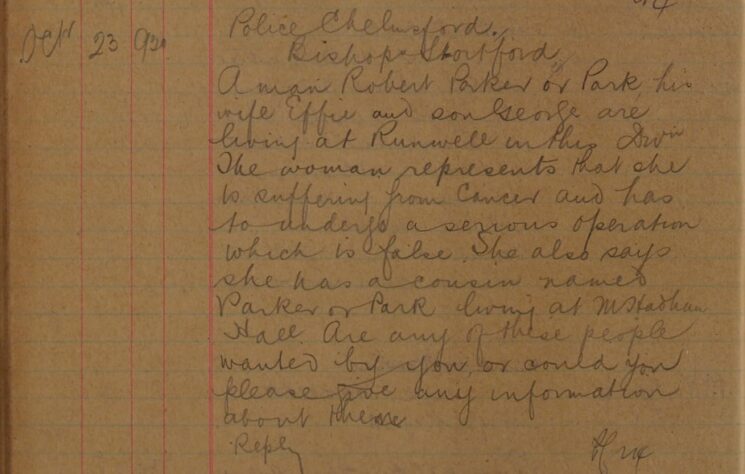 Police Chelmsford.
Bishops Stortford
A man Robert Parker or Park, his
wife Effie and son George are
living at Runwell in this Divn
The woman represents that she
is suffering from Cancer and has
to undergo a serious operation
which is false. She also says
she has a cousin named
Parker or Park living at M Hadham
Hall. Are any of these people
wanted by you, or could you
please give any information
about them
Reply
23